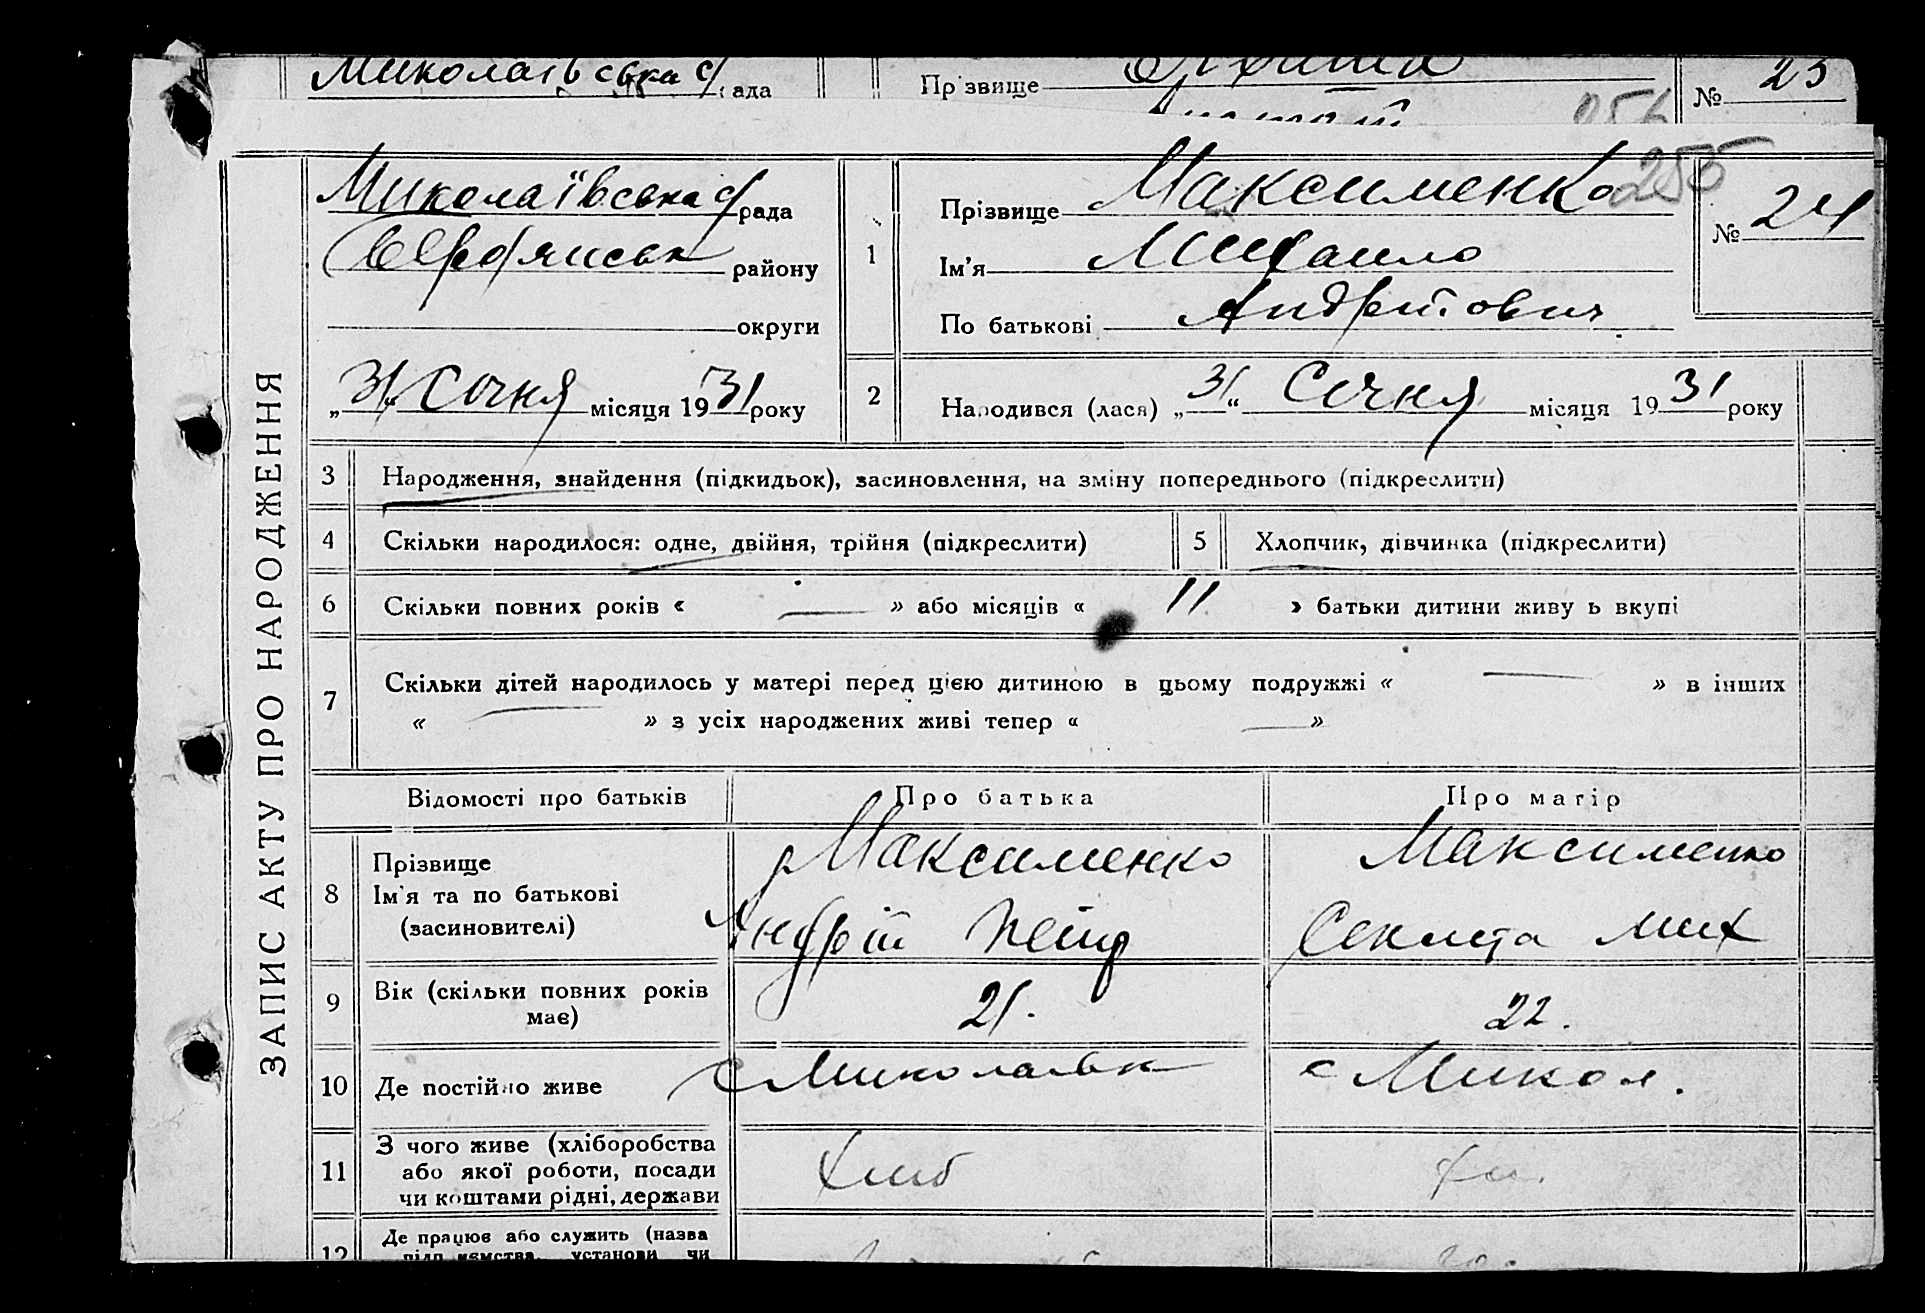 Миколаївська с/рада
Прізвище
№ 23
256
ЗАПИС АКТУ ПРО НАРОДЖЕННЯ
Миколаївська с/рада
Бердянськ району
округи
„31“ Січня місяця 1931 року
1
Прізвище Максименко
255
Ім'я Михайло
По батькові Андрійович
№ 24
2
Народився (лася) „31“ Січня місяця 1931 року
3 Народження, знайдення (підкидьок), засиновлення, на зміну попереднього (підкреслити)
4 Скільки народилося: одне, двійня, трійня (підкреслити)
5 Хлопчик, дівчинка (підкреслити)
6 Скільки повних років « — » або місяців « 11 » батьки дитини живуть вкупі
7 Скільки дітей народилось у матері перед цією дитиною в цьому подружжі « — » в інших
« — » з усіх народжених живі тепер « — »
Відомості про батьків Про батька Про матір
8 Прізвище
Ім'я та по батькові
(засиновителі)
Максименко
Андрій Петр
Максименко
Секлета Мих
9 Вік (скільки повних років
має)
21.
22.
10 Де постійно живе с Миколаївк с Микол.
11 З чого живе (хліборобства
або якої роботи, посади
чи коштами рідні, держави
Хліб
Хл.
12 Де працює або служить (назва
підприємства, установи чи